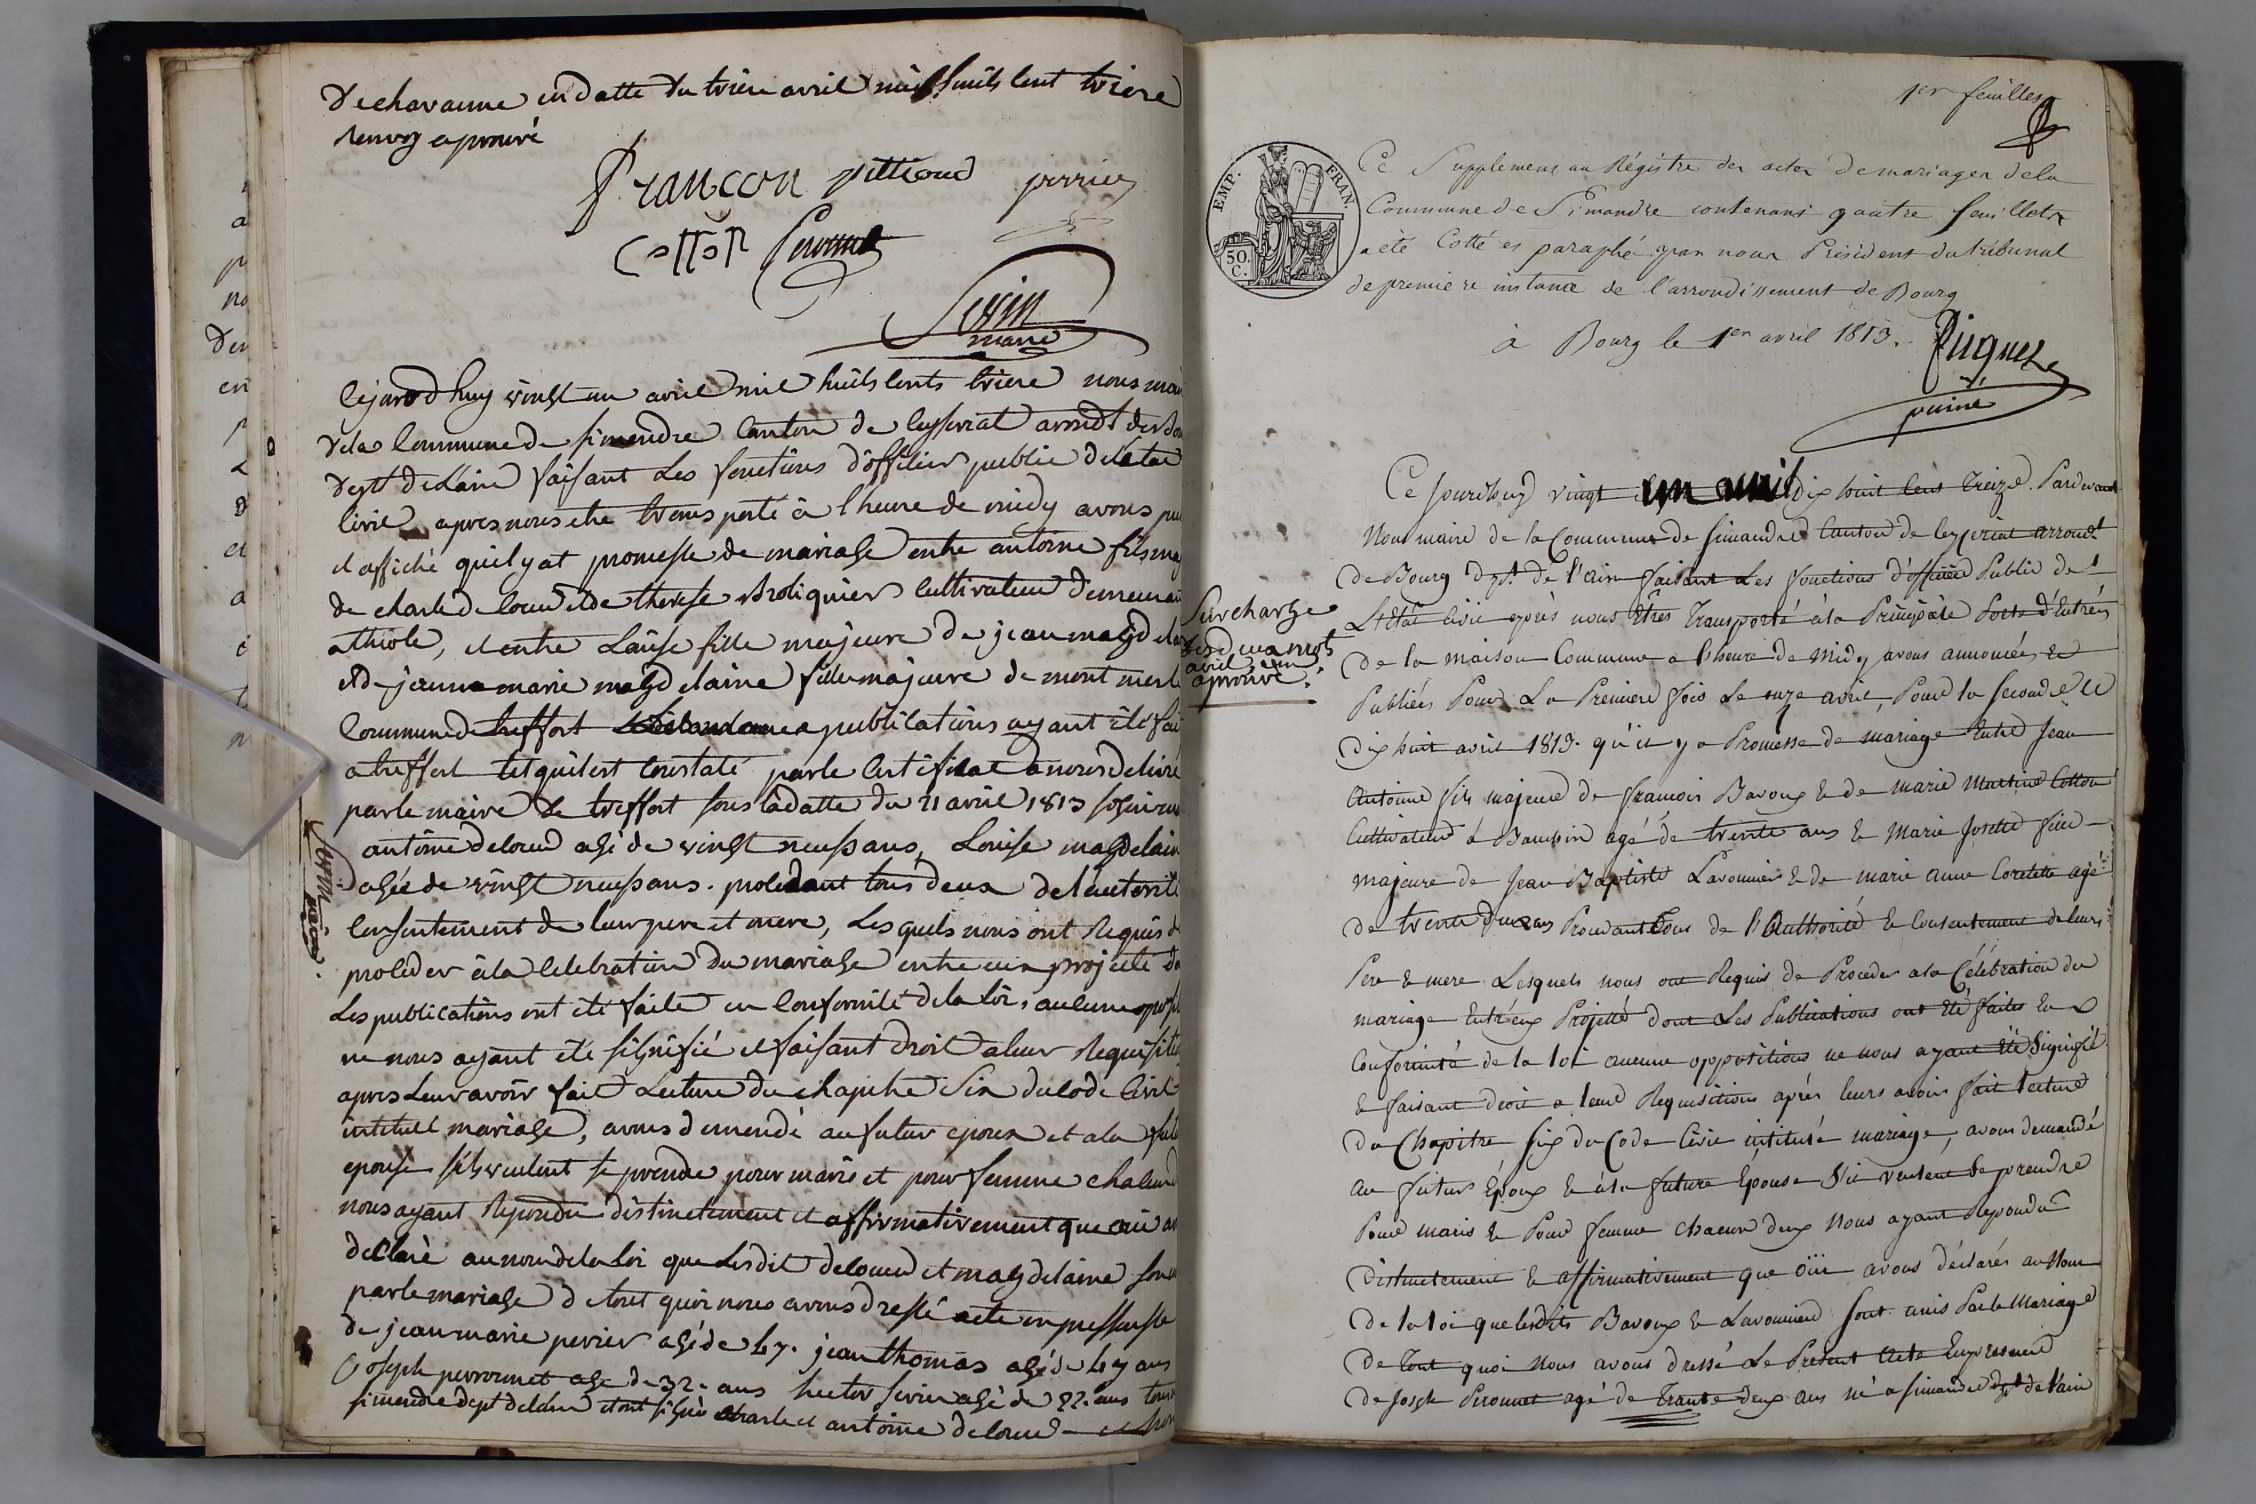 De chavanne en datte du trieze avril mil huits cent trieze
Renvoy aprouvé
francon pittioud perrier
Cotton perronnet
Serin
maire
Cejourd'huy vingt un avril mil huits cents trieze nous mai
de la Commune de simendre Canton de Ceyseriat arrondt de Bou
dept de L'ain faisant Les fonctions d'officier public de létat
Civil apres nous etre trensporté à l'heure de midy avons pu
et affiché quil y at promesse de mariage entre antoine fils ma
de charle deloeud et de therese Brotiquier Cultivateur demeuran
athiole, et entre Lauise fille majeure de jean magdelai
et de jeanne marie magdelaine fille majeure de mont merle
Commune de treffort publications ayant été fai
a treffort tel quil est Constaté par le Certificat a nous delivré
par le maire de treffort sous la datte du 21 avril 1813
antoine deloeud agé de vingt neuf ans, Louise magdelain
agée de vingt neuf ans. procedant tous deux de l'autorité
Consentement de leur pere et mere, Lesquels nous ont Requis de
proceder à la Celebration du mariage entre eux projecté do
Les publications ont été faite en Conformité de la loi, aucune oposi
ne nous ayant été signifié et faisant droit a leur Requisition
apres Leur avoir fait Lecture du chapitre Six du Code Civil
intitulé mariage, avons demendé au futur epoux et a la futu
epouse s'ils veulent se prendre pour maris et pour femme chaleund
nous ayant Repondu distinctement et affirmativement que oui av
déClaré au nom de la loi que Lesdit deloeud et magdelaine sont u
par le mariage de tout quoi nous avons dressé acte en pressense
de jean marie perrier agé de 47. jean thomas agé de 47 ans
Joseph perronnet age de 32. ans hector serin agé de 22. ans tous
simendre dept de lain et ont signé charle et antoine deloeud
Serin
maire
1er feuillet
EMP. FRAN.
50.
C.
Ce Supplement au Régistre des actes de mariages de la
Commune de Simandre contenant quatre feuillets
a été Cotté et paraphé par nous Président du tribunal
de premiere instance de l'arrondissement de Bourg
à Bourg le 1er avril 1813.
Puguet
puiné
Ce jourdhuy vingt un avril dix huit cent treize. Pardevant
Nous maire de la Commune de simandre Canton de Ceyzeriat arrondt
de Bourg dpt. de l'ain faisant Les fonctions d'officier Public de
L'état Civil après nous être Transporté à la Principale Porte d'Entrée
de la maison Commune a l'heure de Midy, avons annoncée et
Publiées Pour La Premiere fois Le onze avril, Pour la seconde le
Dix huit avril 1813. qu'il y a Promesse de mariage Entre Jean
Antoine fils majeure de francois Bavoux & de marie Martine Cotton
Cultivateur à Banssin agé de trente ans & Marie Josette fille
majeure de Jean Baptiste Lavonnier & de marie anne Coretette agé
de trente deux ans Procedant tous de l'Authorité & Consentement de leurs
Pere & mere Lesquels nous ont Requis de Proceder a la Célébration du
mariage Entr'eux Projetté dont Les Publications ont Eté faites En
Conformité de la loi aucune oppositions ne nous ayant Eté Signifié
& faisant droit a leur Requisitions après leurs avoir fait lecture
du Chapitre six du Code Civil intitulé mariage, avons demandé
au futur Epoux & à la future Epouse S'il veulent Se prendre
Pour maris & Pour femme Chacun deux Nous ayant Repondu
Distinctement & affirmativement que oüi avons déclarés au Nom
de la loi que lesdits Bavoux & Lavonnier sont unis Par le Mariage
de Tout quoi Nous avons dressé Le Présent Acte En présence
de Joseph Peronnet agé de Trante deux ans né a simandre dpt de l'ain
Surcharge
des deux mots
avril, un,
aprouvé.